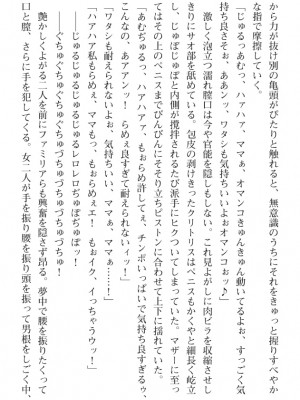 か力が抜け別の亀頭がぴたりと触れると、無意識のうちにそれをきゅっと握りすべやか
な指で摩擦していく。
「じゅるっあむっ、ハァハァ、ママぁ、オマンコきゅんきゅん動いてるよぉ、すっごく気
持ち良さそぉ、ああンッ、ワタシも気持ちいい、オマンコぉッ♪」
激しく泡立つ濡れ膣口は今や官能を隠しもしない。これ見よがしに肉ビラを収縮させし
きりにサオ部を舐めている。包皮の剥けきったクリトリスはペニスもかくやと細長く屹立
し、じゅぽじゅぽと内側が攪拌されるたび派手にヒクついてしまっていた。マザーに至っ
てはその上のペニスまでびんびんにそそり立ちピストンに合わせて上下に揺れていた。
「あむちゅるっ、ハァハァ、もぉらめ許してぇ、チンポいっぱいで気持ち良すぎるぅ、
こんなの、あアアンッ！　らめぇ良すぎて耐えられないィッ！」
「ワタシも耐えられないよぉ、気持ちいい、ママぁ、ママぁ……」
「ハアハア私もらめぇ、ママもっ、もぉらめぇエ！　もぉイク、イっちゃうウッ！」
じゅるじゅるじゅるじゅるレロレロぢゅぽぢゅぽっ！
――ぐちゅぐちゅぐちゅぐちゅづちゅづちゅづちゅり！
艶かしくよがる二人を前にファミリアらも興奮を隠さず昂る。夢中で腰を振りたくって
口と膣、さらに手を犯してくる。女二人が手を振り腰を振り頭を振って男根をしごく中、